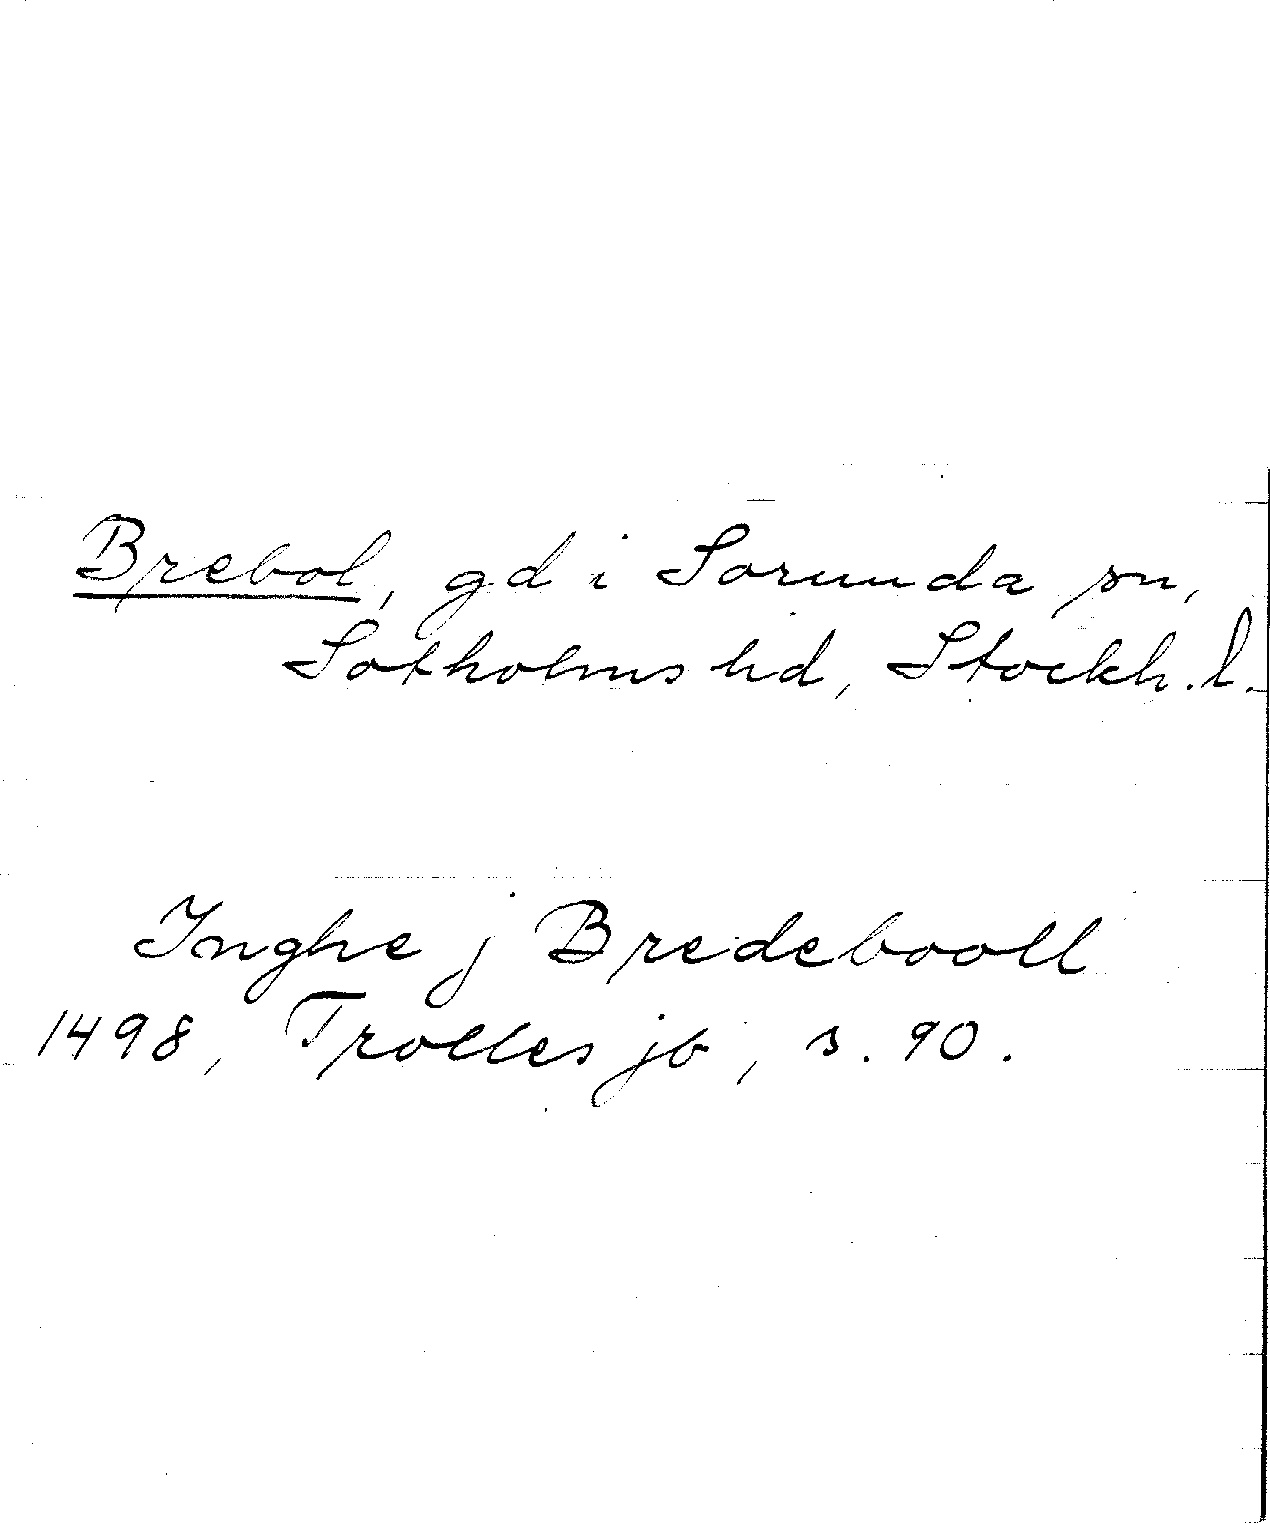 Brebol, gd i Sorunda sn,
Sotholms hd, Stockh. l.
Inghe j Bredebooll
1498, Trolles jb, s. 90.